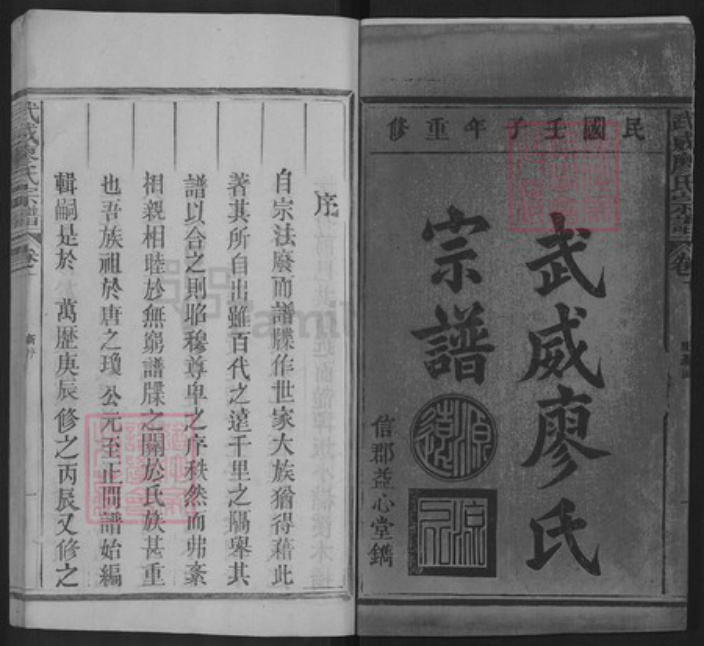 民國壬子年重修
武威廖氏
宗譜
信郡益心堂鐫
武威廖氏宗譜
序
自宗法廢而譜牒作世家大族猶得藉此
著其所自出雖百代之遠千里之隔舉其
譜以合之則昭穆尊卑之序秩然而弗紊
相親相睦於無窮譜牒之關於氏族甚重
也吾族祖於唐之瓊 公元至正間譜始編
輯嗣是於 萬歷庚辰修之丙辰又修之
武威廖氏宗譜